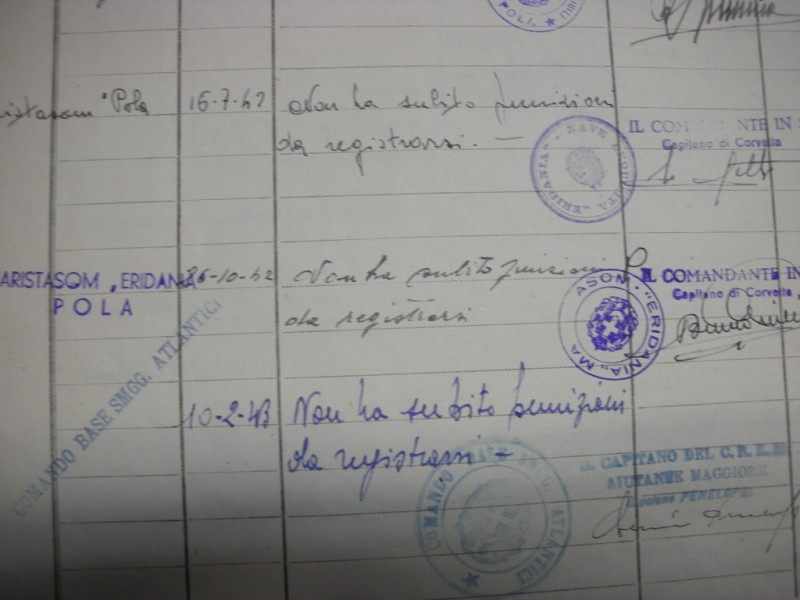 POLI.
Pola 16-7-42 Non ha subito punizioni
da registrarsi. —
IL COM NTE IN
Capitano di Corvetta
NAVE "ERIDANIA"
ARISTASOM „ERIDANIA
POLA
26-10-42 Non ha subito punizioni
da registrarsi
MARISTASOM. "ERIDANIA"
IL COMANDANTE IN
Capitano di Corvetta
COMANDO BASE SMGG. ATLANTICI
10-2-43 Non ha subito punizioni
da registrarsi —
COMANDO BASE SMG. ATLANTICI
IL CAPITANO DEL C.R.E.M.
AIUTANTE MAGGIORE
PENELOPE)